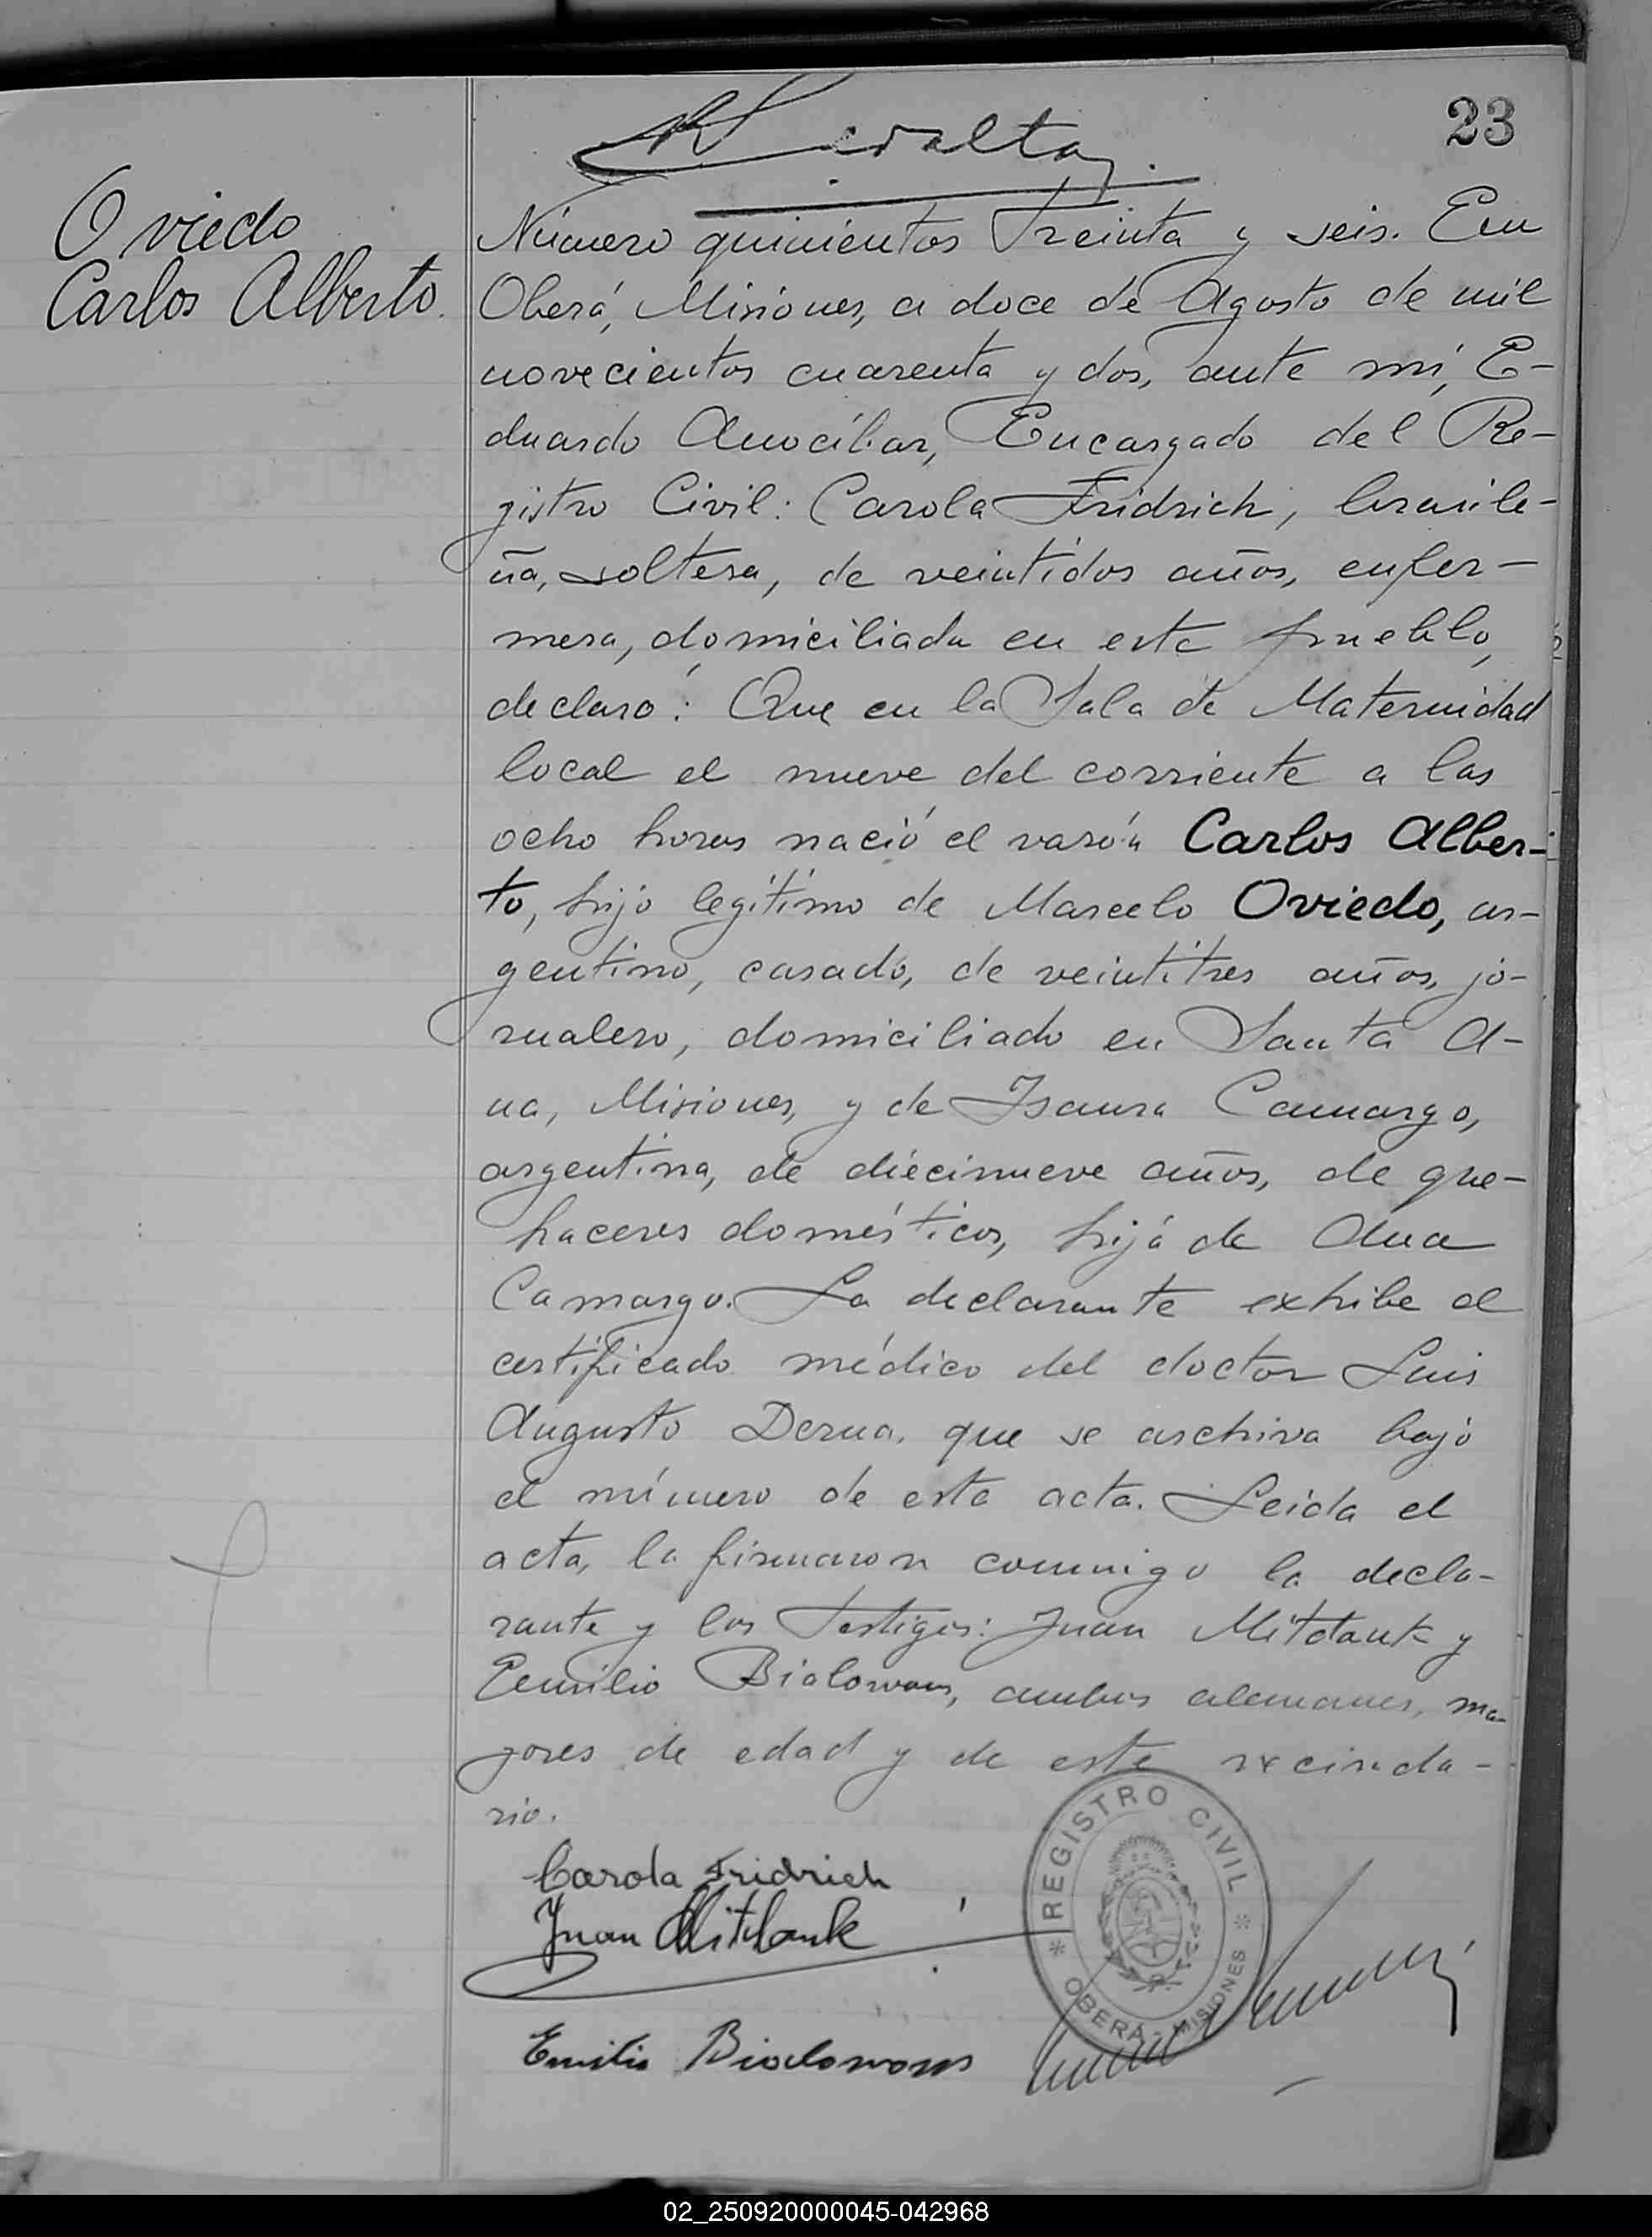 23
Oviedo
Carlos Alberto.
Número quinientos treinta y seis. En
Oberá, Misiones, a doce de Agosto de mil
novecientos cuarenta y dos, ante mí, E-
duardo Anocíbar, Encargado del Re-
gistro Civil: Carola Fridrich, brasile-
ña, soltera, de veintidos años, enfer-
mera, domiciliada en este pueblo,
declaró: Que en la Sala de Maternidad
local el nueve del corriente a las
ocho horas nació el varón Carlos Alber-
to, hijo legítimo de Marcelo Oviedo, ar-
gentino, casado, de veintitres años, jo-
rnalero, domiciliado en Santa A-
na, Misiones, y de Isaura Camargo,
argentina, de diecinueve años, de que-
haceres domésticos, hija de Ana
Camargo. La declarante exhibe el
certificado médico del doctor Luis
Augusto Derna, que se archiva bajo
el número de esta acta. Leida el
acta, la firmaron conmigo la decla-
rante y los testigos: Juan Mitdank y
Emilio Bialowons, ambos alemanes, ma-
yores de edad y de este vecinda-
rio.
Carola Fridrich
Juan Mitdank
Emilio Bialowons
REGISTRO CIVIL
OBERÁ - MISIONES
02_250920000045-042968